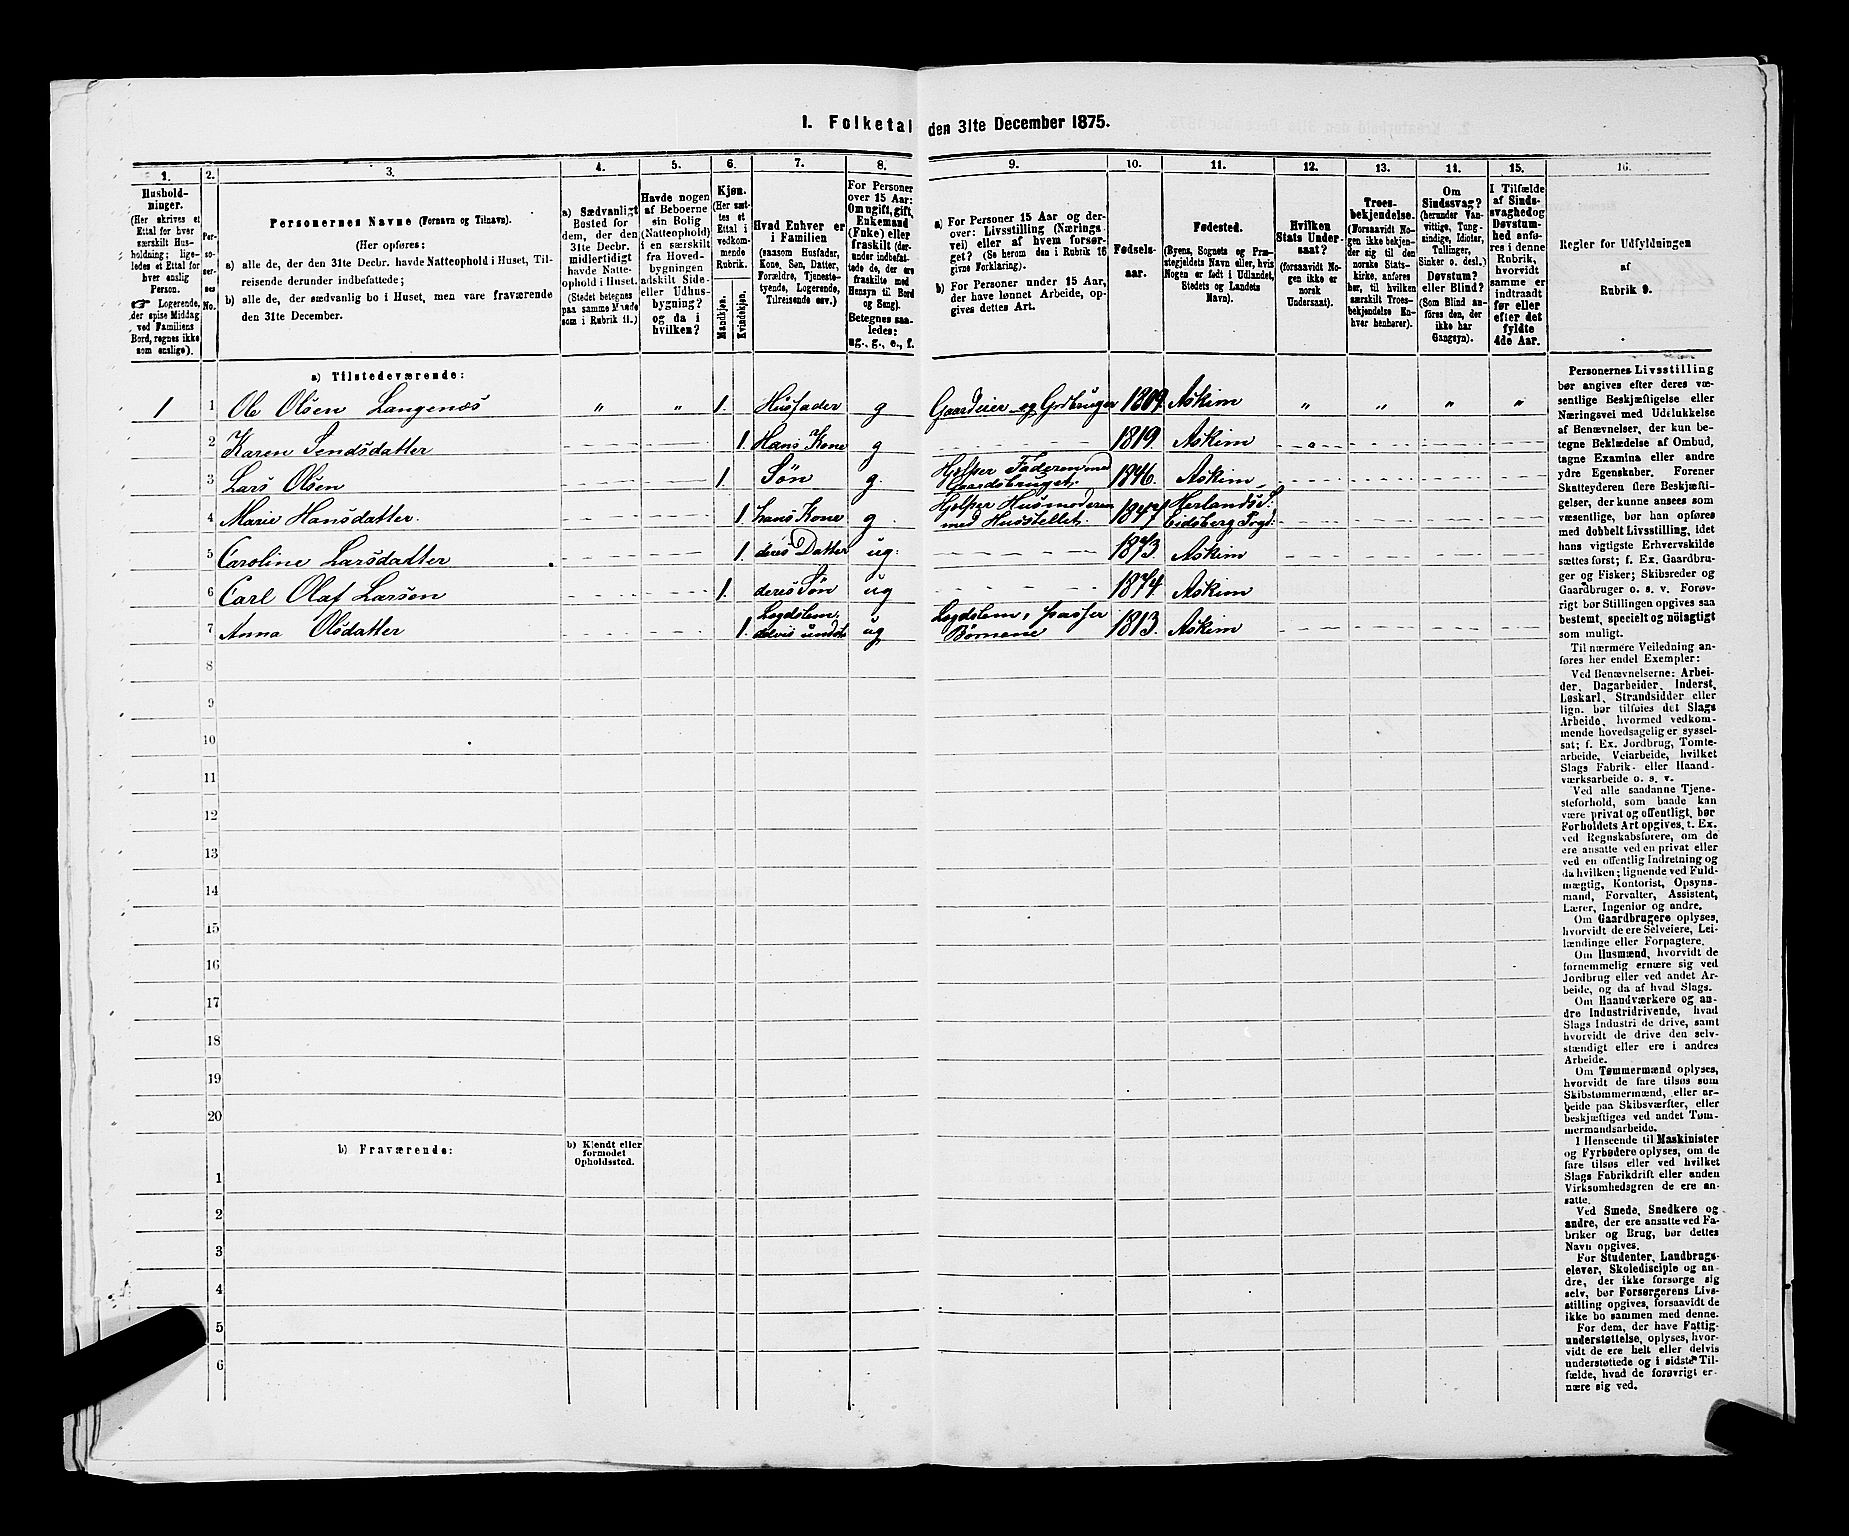 1. Folketal den 31te December 1875.
1. 2. 3. 4. 5. 6. 7. 8. 9. 10. 11. 12. 13. 14. 15. 16.
Hushold-
ninger.
(Her skrives et
Ettal for hver
særskilt Hus-
holdning; lige-
ledes et Ettal for
hver enslig
Person.
☞ Logerende,
der spise Middag
ved Familiens
Bord, regnes ikke
som enslige).
Per-
so-
ner-
nes
No.
Personernes Navne (Fornavn og Tilnavn).
(Her opføres:
a) alle de, der den 31te Decbr. havde Natteophold i Huset, Til-
reisende derunder indbefattede;
b) alle de, der sædvanlig bo i Huset, men vare fraværende
den 31te December.
a) Sædvanligt
Bosted for
dem, der den
31te Decbr.
midlertidigt
havde Natte-
ophold i Huset.
(Stedet betegnes
paa samme Maade
som i Rubrik 11.)
Havde nogen
af Beboerne
sin Bolig
(Natteophold)
i en særskilt
fra Hoved-
bygningen
adskilt Side-
eller Udhus-
bygning?
og da i
hvilken?
Kjøn.
(Her sæt-
tes et
Ettal i
vedkom-
mende
Rubrik.
Mandkjøn.
Kvindekjøn.
Hvad Enhver er
i Familien
(saasom Husfader,
Kone, Søn, Datter,
Forældre, Tjeneste-
tyende, Logerende,
Tilreisende osv.)
For Personer
over 15 Aar:
Om ugift, gift,
Enkemand
(Enke) eller
fraskilt (der-
under indbefat-
tede de, der ere
fraskilte med
Hensyn til Bord
og Seng).
Betegnes saa-
ledes:
ug., g., e., f.
a) For Personer 15 Aar og der-
over: Livsstilling (Nærings-
vei) eller af hvem forsør-
get? (Se herom den i Rubrik 16
givne Forklaring).
b) For Personer under 15 Aar,
der have lønnet Arbeide, op-
gives dettes Art.
Fødsels-
aar.
Fødested.
(Byens, Sognets og Præ-
stegjeldets Navn eller, hvis
Nogen er født i Udlandet,
Stedets og Landets
Navn).
Hvilken
Stats Under-
saat?
(forsaavidt No-
gen ikke er
norsk
Undersaat).
Troes-
bekjendelse.
(Forsaavidt No-
gen ikke bekjen-
der sig til den
norske Stats-
kirke, anføres
her, til hvilken
særskilt Troes-
bekjendelse En-
hver henhører).
Om
Sindssvag?
(herunder Van-
vittige, Tung-
sindige, Idioter,
Tullinger,
Sinker o. desl.)
Døvstum?
eller Blind?
(Som Blind an-
føres den, der
ikke har
Gangsyn).
I Tilfælde
af Sinds-
svaghed og
Døvstum-
hed anfø-
res i denne
Rubrik,
hvorvidt
samme er
indtraadt
før eller
efter det
fyldte
4de Aar.
Regler for Udfyldningen
af
Rubrik 9.
a) Tilstedeværende:
1 1 Ole Olsen Langenæs " " 1. Husfader g Gaardeier og Gdbruger 1809. Askim " " " "
2 Karen Sendsdatter 1. Hans Kone g 1819. Askim
3 Lars Olsen 1 Søn g. Hjelper Faderen med Gaardsbruget. 1846. Askim
4 Marie Hansdatter. 1. hans Kone g. Hjelper Husmoderen med Husstellet. 1847 Herlands S. Eidsberg Prgd:
5 Caroline Larsdatter 1. deres Datter ug: 1873. Askim
6 Carl Olaf Larsen 1. deres Søn ug 1874. Askim
7 Anna Olsdatter 1. Lægdslem. delvis underst. ug Lægdslem, passer Børnene 1813. Askim
8
9
10
11
12
13
14
15
16
17
18
19
20
b) Fraværende:
b) Kjendt eller
formodet
Opholdssted.
1
2
3
4
5
6
Personernes Livsstilling
bør angives efter deres væ-
sentlige Beskjæftigelse eller
Næringsvei med Udelukkelse
af Benævnelser, der kun be-
tegne Beklædelse af Ombud,
tagne Examina eller andre
ydre Egenskaber. Forener
Skatteyderen flere Beskjæfti-
gelser, der kunne ansees som
væsentlige, bør han opføres
med dobbelt Livsstilling, idet
hans vigtigste Erhvervskilde
sættes først; f. Ex. Gaardbru-
ger og Fisker; Skibsreder og
Gaardbruger o. s. v. Forøv-
rigt bør Stillingen opgives saa
bestemt, specielt og nøiagtigt
som muligt.
Til nærmere Veiledning an-
føres her endel Exempler:
Ved Benævnelserne: Arbei-
der, Dagarbeider, Inderst,
Løskarl, Strandsidder eller
lign. bør tilføies det Slags
Arbeide, hvormed vedkom-
mende hovedsagelig er syssel-
sat; f. Ex. Jordbrug, Tomte-
arbeide, Veiarbeide, hvilket
Slags Fabrik- eller Haand-
værksarbeide o. s. v.
Ved alle saadanne Tjene-
steforhold, som baade kan
være privat og offentligt, bør
Forholdets Art opgives, t. Ex.
ved Regnskabsførere, om de
ere ansatte ved en privat eller
ved en offentlig Indretning og
da hvilken; lignende ved Fuld-
mægtig, Kontorist, Opsyns-
mand, Forvalter, Assistent,
Lærer, Ingeniør og andre.
Om Gaardbrugere oplyses,
hvorvidt de ere Selveiere, Lei-
lændinge eller Forpagtere.
Om Husmænd, hvorvidt de
fornemmelig ernære sig ved
Jordbrug eller ved andet Ar-
beide, og da af hvad Slags.
Om Haandværkere og an-
dre Industridrivende, hvad
Slags Industri de drive, samt
hvorvidt de drive den selv-
stændigt eller ere i andres
Arbeide.
Om Tømmermænd oplyses,
hvorvidt de fare tilsøs som
Skibstømmermænd, eller ar-
beide paa Skibsværfter, eller
beskjæftiges ved andet Tøm-
mermandsarbeide.
I Henseende til Maskinister
og Fyrbødere oplyses, om de
fare tilsøs eller ved hvilket
Slags Fabrikdrift eller anden
Virksomhedsgren de ere an-
satte.
Ved Smede, Snedkere og
andre, der ere ansatte ved Fa-
briker og Brug, bør dettes
Navn opgives.
For Studenter, Landbrugs-
elever, Skoledisciple og an-
dre, der ikke forsørge sig
selv, bør Forsørgerens Livs-
stilling opgives, forsaavidt de
ikke bo sammen med denne.
For dem, der have Fattig-
understøttelse, oplyses, hvor-
vidt de ere helt eller delvis
understøttede og i sidste Til-
fælde, hvad de forøvrigt er-
nære sig ved.